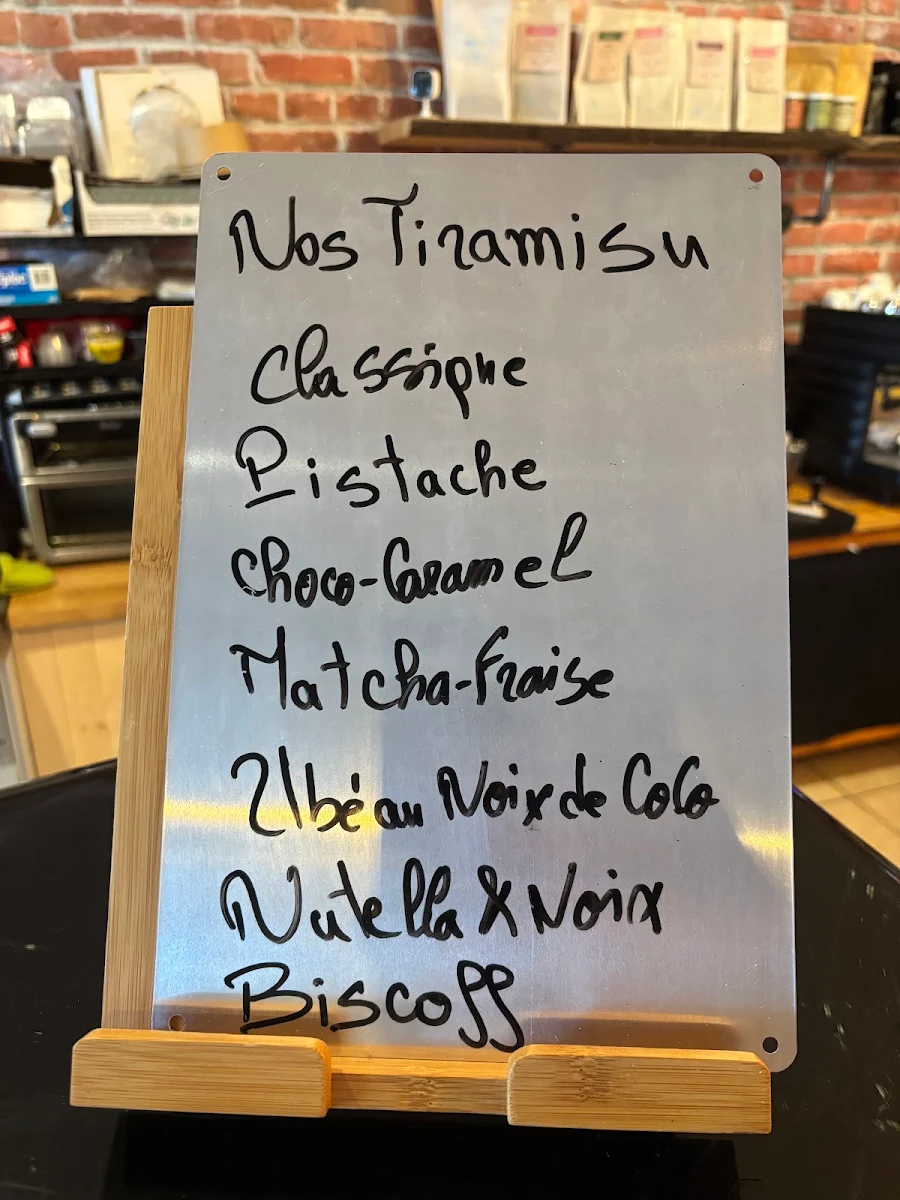 Nos Tiramisu
Classique
Pistache
Choco-Caramel
Matcha-Fraise
Ubé au Noix de CoCo
Nutella & Noix
Biscoff